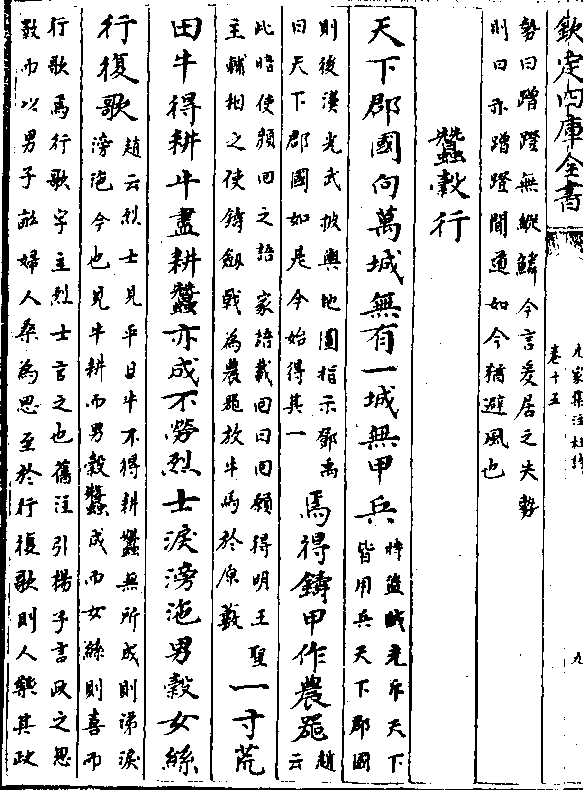 欽定四庫全書
九家集注杜詩
卷十五
九
勢曰蹭蹬無縱鱗今言爰居之失勢
則曰亦蹭蹬間道如今猶避風也
蠶穀行
天下郡國向萬城無有一城無甲兵
時盜賊充斥天下
皆用兵天下郡國
則後漢光武披輿地圖指示鄧禹
曰天下郡國如是今始得其一
焉得鑄甲作農器
趙
云
此暗使顔回之語家語載回曰回願得明王聖
主輔相之使鑄劔戟為農器放牛馬於原藪
一寸荒
田牛得耕牛盡耕蠶亦成不勞烈士淚滂沱男穀女絲
行復歌
趙云烈士見平日牛不得耕蠶無所成則涕淚
滂沱今也見牛耕而男穀蠶成而女絲則喜而
行歌焉行歌字主烈士言之也舊注引楊子言政之思
斁而以男子畝婦人桑為思至於行復歌則人樂其政